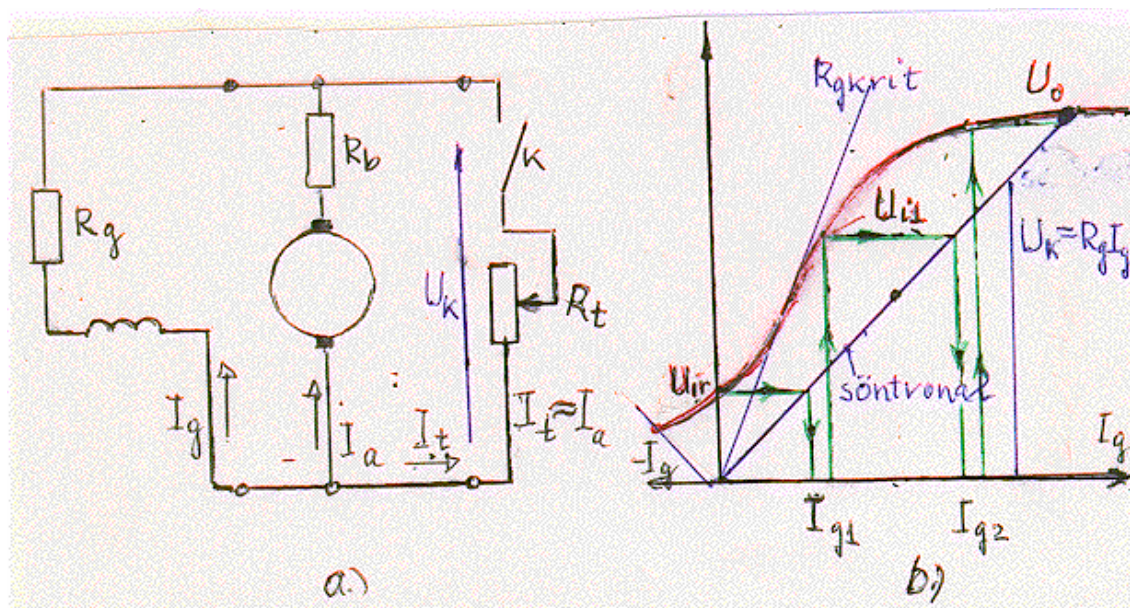 R_g
R_b
K
U_K
R_t
I_g
I_a
I_t
I_t≈I_a
a.)
R_gkrit
U_0
U_i1
U_K=R_gI_g
U_ir
söntvonal
-I_g
I_g
I_g1
I_g2
b.)